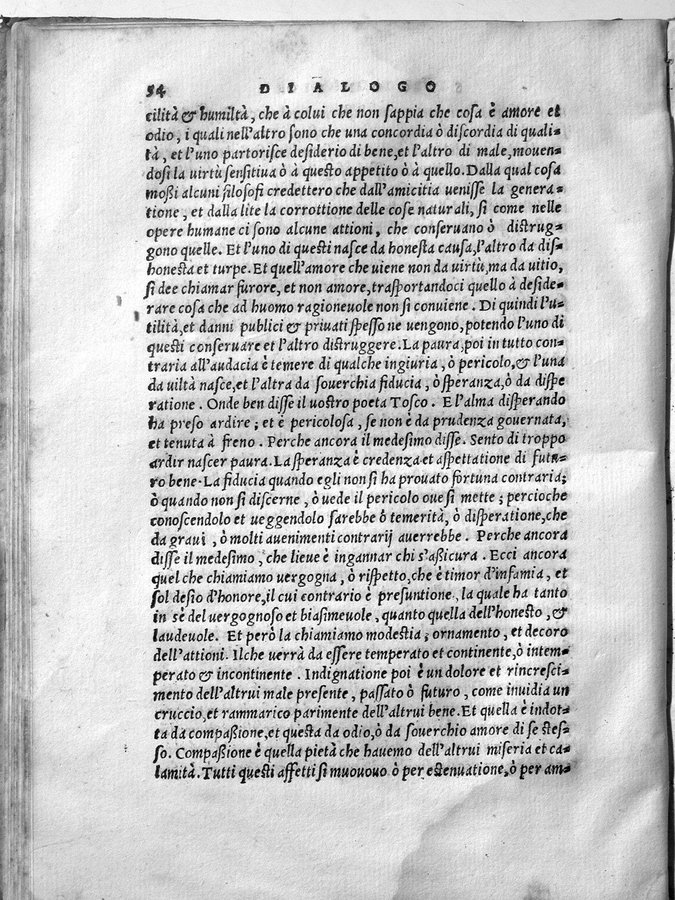 54 DIALOGO
cilità & humiltà, che à colui che non sappia che cosa è amore et
odio, i quali nell'altro sono che una concordia ò discordia di quali=
tà, et l'uno partorisce desiderio di bene, et l'altro di male, mouen=
dosi la uirtù sensitiua ò à questo appetito ò à quello. Dalla qual cosa
moßi alcuni filosofi credettero che dall'amicitia uenisse la genera=
tione, et dalla lite la corrottione delle cose naturali, si come nelle
opere humane ci sono alcune attioni, che conseruano ò distrug=
gono quelle. Et l'uno di questi nasce da honesta causa, l'altro da dis=
honesta et turpe. Et quell'amore che uiene non da uirtù, ma da uitio,
si dee chiamar furore, et non amore, trasportandoci quello à deside=
rare cosa che ad huomo ragioneuole non si conuiene. Di quindi l'u=
tilità, et danni publici & priuati spesso ne uengono, potendo l'uno di
questi conseruare et l'altro distruggere. La paura, poi in tutto con=
traria all'audacia è temere di qualche ingiuria, ò pericolo, & l'una
da uiltà nasce, et l'altra da souerchia fiducia, ò speranza, ò da dispe
ratione. Onde ben disse il uostro poeta Tosco. E l'alma disperando
ha preso ardire; et è pericolosa, se non è da prudenza gouernata,
et tenuta à freno. Perche ancora il medesimo disse. Sento di troppo
ardir nascer paura. La speranza è credenza et aspettatione di futu=
ro bene. La fiducia quando egli non si ha prouato fortuna contraria;
ò quando non si discerne, ò uede il pericolo oue si mette; percioche
conoscendolo et ueggendolo sarebbe ò temerità, ò disperatione, che
da graui, ò molti auenimenti contrarij auerrebbe. Perche ancora
disse il medesimo, che lieue è ingannar chi s'aßicura. Ecci ancora
quel che chiamiamo uergogna, ò rispetto, che è timor d'infamia, et
sol desio d'honore, il cui contrario è presuntione, la quale ha tanto
in sè del uergognoso et biasimeuole, quanto quella dell'honesto, &
laudeuole. Et però la chiamiamo modestia, ornamento, et decoro
dell'attioni. Ilche uerrà da essere temperato et continente, ò intem=
perato & incontinente. Indignatione poi è un dolore et rincresci=
mento dell'altrui male presente, passato ò futuro, come inuidia un
cruccio, et rammarico parimente dell'altrui bene. Et quella è indot=
ta da compassione, et questa da odio, ò da souerchio amore di se stes=
so. Compaßione è quella pietà che hauemo dell'altrui miseria et ca=
lamità. Tutti questi affetti si muououo ò per estenuatione, ò per am=